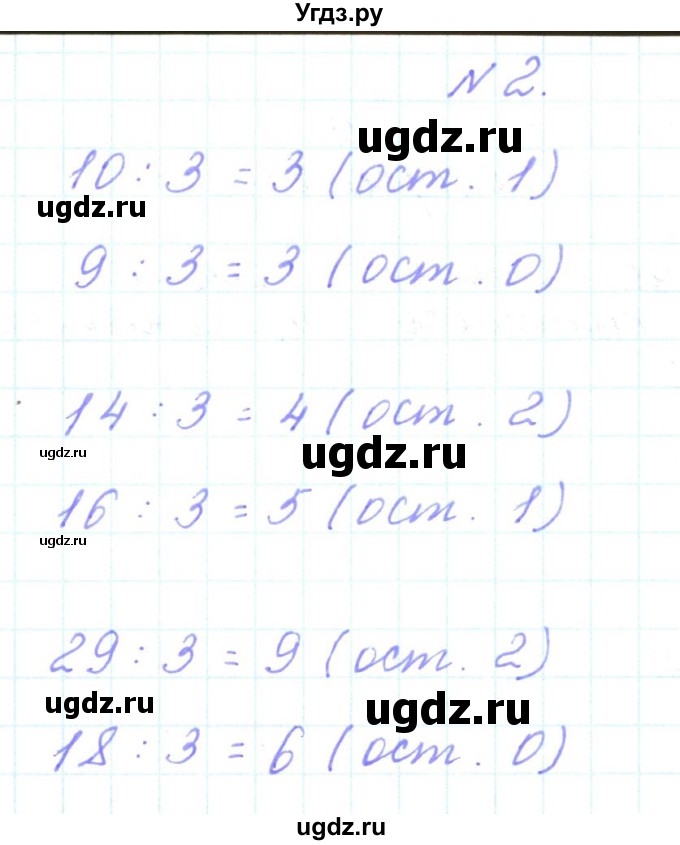 Угдз.ру
N 2.
ugdz.ru
10 : 3 = 3 (ост. 1)
ugdz.ru
9 : 3 = 3 (ост. 0)
14 : 3 = 4 (ост. 2)
ugdz.ru
ugdz.ru
16 : 3 = 5 (ост. 1)
ugdz.ru
29 : 3 = 9 (ост. 2)
ugdz.ru
ugdz.ru
18 : 3 = 6 (ост. 0)
ugdz.ru